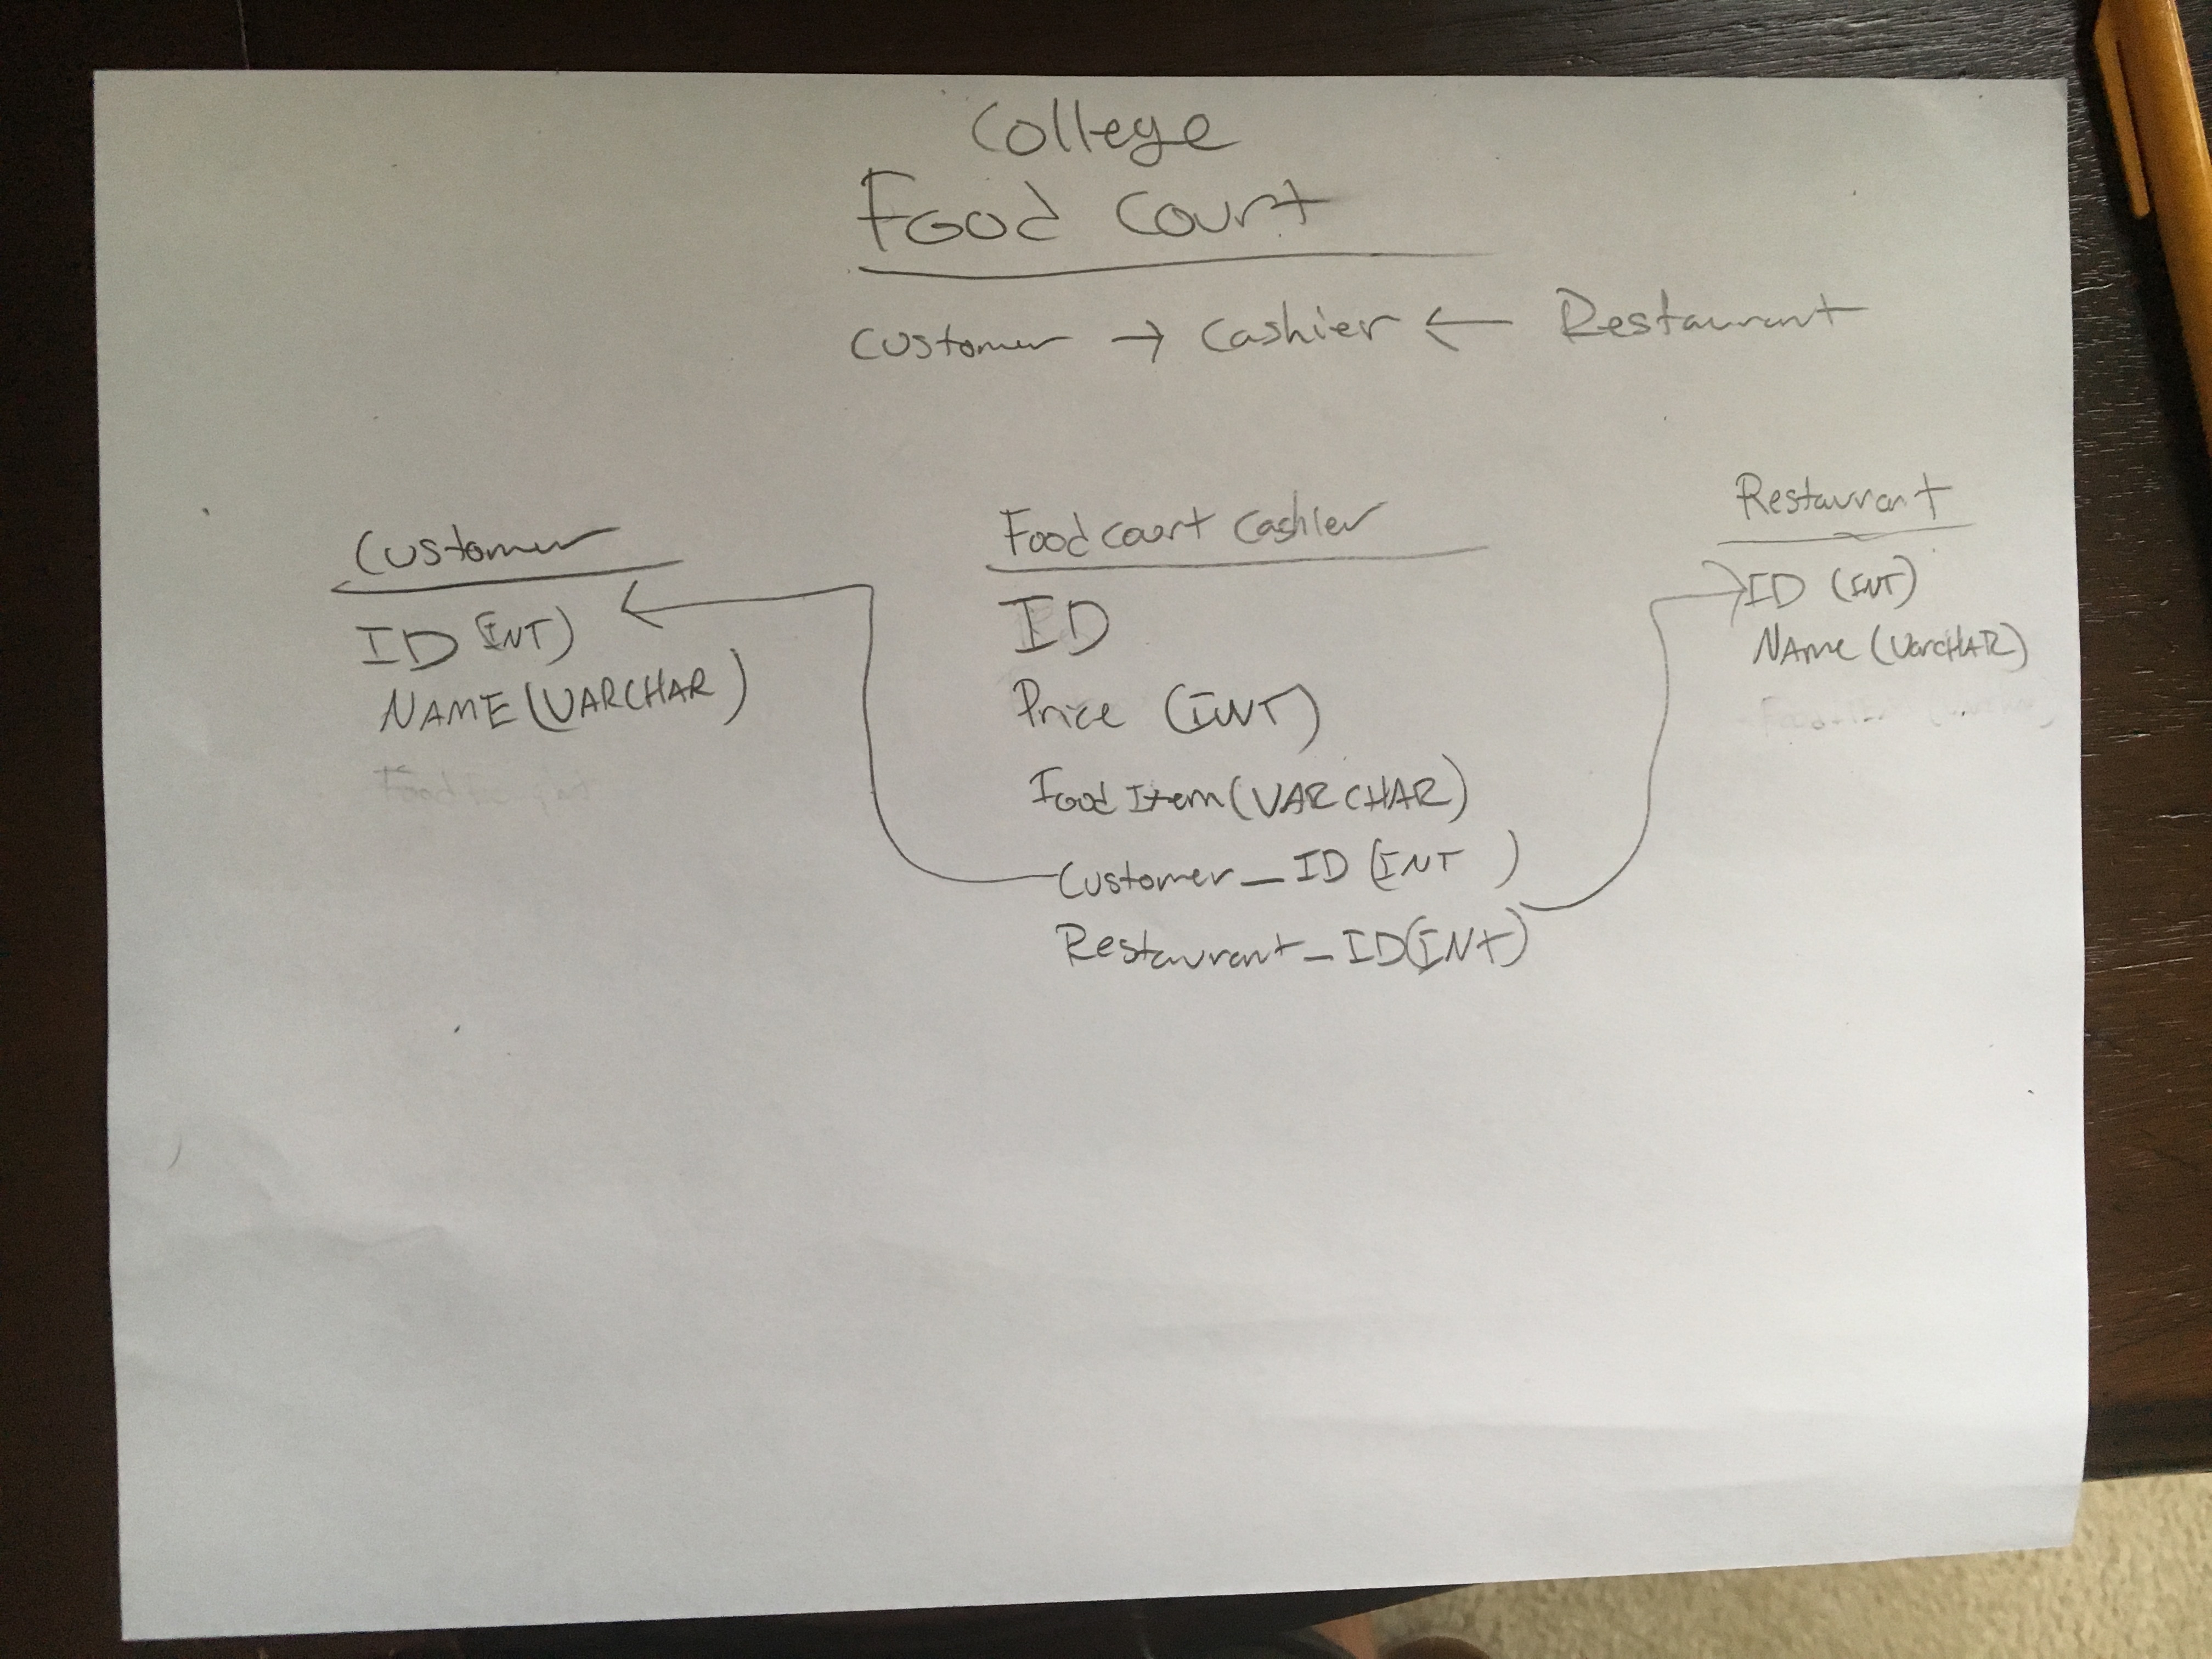 College
Food Court
Customer → Cashier ← Restaurant
Customer
ID (INT)
NAME (VARCHAR)
Food court Cashier
ID
Price (INT)
Food Item (VARCHAR)
Customer_ID (INT)
Restaurant_ID (INT)
Restaurant
ID (INT)
NAme (VarCHAR)